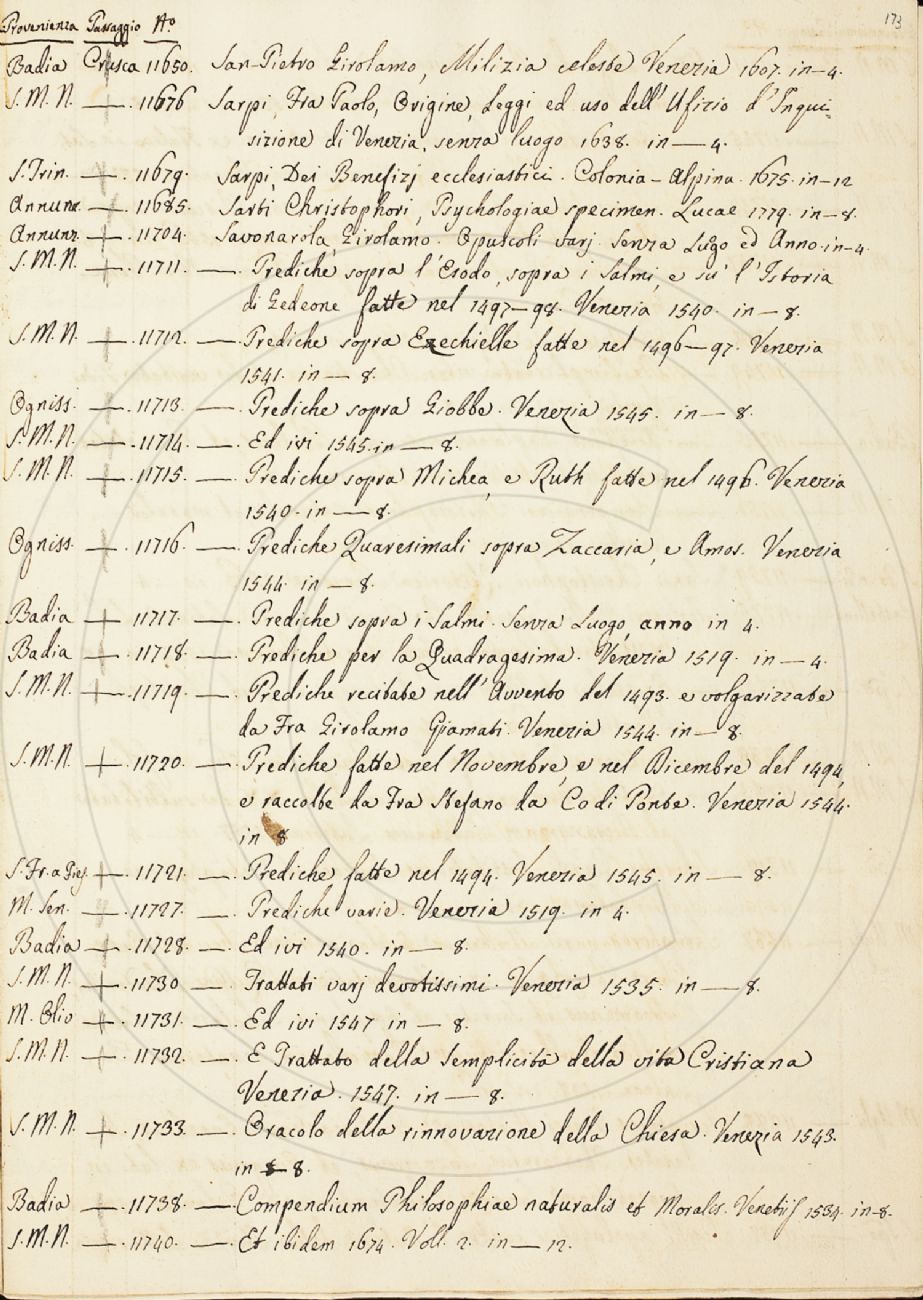 173
Provenienza Passaggio Nº
Badia Crusca 11650. San-Pietro Girolamo, Milizia celeste Venezia 1607. in-4.
S.M.N. —. 11676 Sarpi, Fra Paolo, Origine, Leggi ed uso dell'Ufizio d'Inqui-
sizione di Venezia, senza luogo 1638. in — 4.
S.Trin. —. 11679. Sarpi, Dei Benefizj ecclesiastici. Colonia-Alpina. 1675. in-12
Annunz. —. 11685. Sarti Christophori, Psychologiae specimen. Lucae 1779. in-8.
Annunz. —. 11704. Savonarola, Girolamo. Opuscoli varj. Senza Lugo ed Anno. in-4.
S.M.N. —. 11711. —. Prediche sopra l'Esodo, sopra i Salmi, e su' l'Istoria
di Gedeone fatte nel 1497-98. Venezia 1540. in — 8.
S.M.N —. 11712. —. Prediche sopra Ezechielle fatte nel 1496-97. Venezia
1541. in — 8.
Ogniss. —. 11713. —. Prediche sopra Giobbe. Venezia 1545. in — 8.
S.M.N. —. 11714. —. Ed ivi 1545. in — 8.
S.M.N. —. 11715. —. Prediche sopra Michea, e Ruth fatte nel 1496. Venezia
1540. in — 8.
Ogniss. —. 11716. —. Prediche Quaresimali sopra Zaccaria, e Amos. Venezia
1544. in — 8.
Badia —. 11717. —. Prediche sopra i Salmi. Senza Luogo, anno in 4.
Badia —. 11718. —. Prediche per la Quadragesima. Venezia 1519. in — 4.
S.M.N. —. 11719. —. Prediche recitate nell'Avvento del 1493. e volgarizzate
da Fra Girolamo Venezia 1544. in — 8.
S.M.N. —. 11720. —. Prediche fatte nel Novembre, e nel Dicembre del 1494,
e raccolte da Fra Stefano da Co di Ponte. Venezia 1544.
in 8
S.Fr. a —. 11721. —. Prediche fatte nel 1494. Venezia 1545. in — 8.
M. Sen. —. 11727. —. Prediche varie. Venezia 1519. in 4.
Badia —. 11728. —. Ed ivi 1540. in — 8.
S.M.N. —. 11730 —. Trattati varj devotissimi. Venezia 1535. in — 8.
M. Oliv —. 11731. —. Ed ivi 1547 in — 8.
S.M.N. —. 11732. —. E Trattato della Semplicità della vita Cristiana
Venezia. 1547. in — 8.
S.M.N. —. 11733. —. Oracolo della rinnovazione della Chiesa. Venezia 1543.
in 8.
Badia —. 11738. —. Compendium Philosophiae naturalis et Moralis. Venetijs 1534. in-8.
S.M.N. —. 11740. —. Et ibidem 1674. Voll. 2. in — 12.